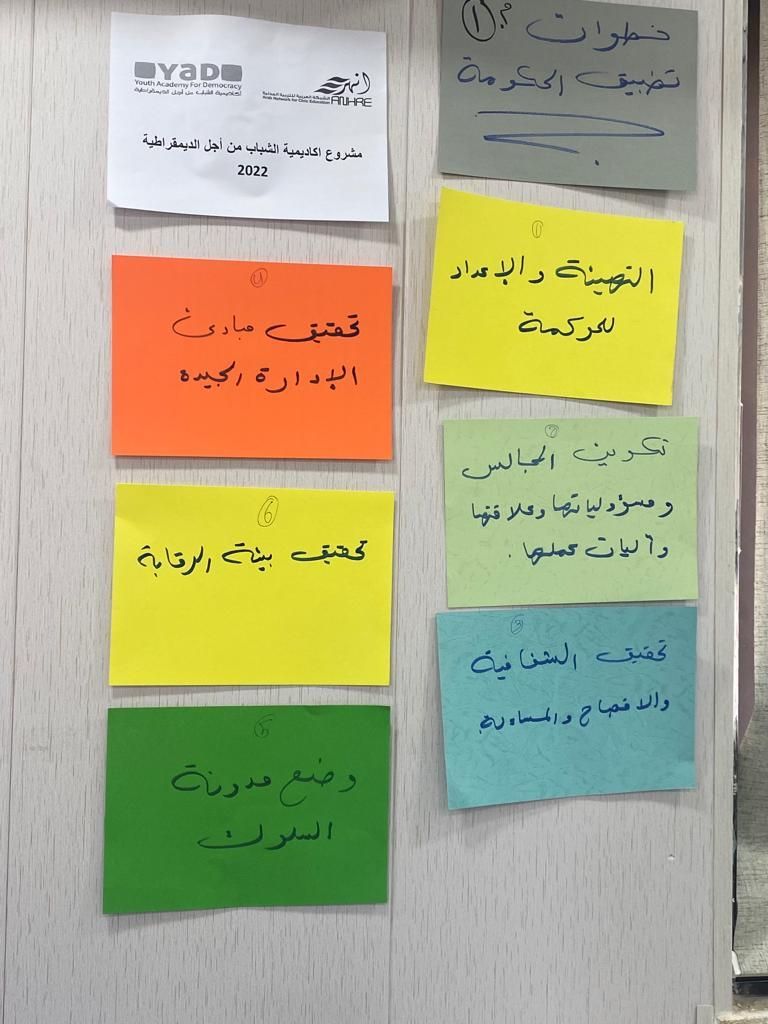 خطوات
تطبيق الحكومة
YaD
Youth Academy For Democracy
أكاديمية الشباب من أجل الديمقراطية
انهر
ANHRE
الشبكة العربية للتربية المدنية
Arab Network for Civic Education
مشروع اكاديمية الشباب من أجل الديمقراطية
2022
1
التهيئة والإعداد
للحركمة
2
تكوين المجالس
ومسؤولياتها وعلاقتها
وآليات عملها .
3
تحقيق الشفافية
والافصاح والمساءلة
تحقيق مبادئ
الإدارة الجيدة
6
تحقيق بيئة الرقابة
5
وضع مدونة
السلوك